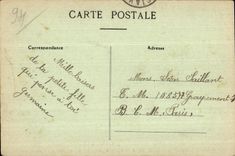 94
CARTE POSTALE
Correspondance
Adresse
Mille baisers
de la petite fille
qui pense à toi
Germaine
Mons. Léon Saillant
T. M. 1885 Groupement
B. C. M. Paris